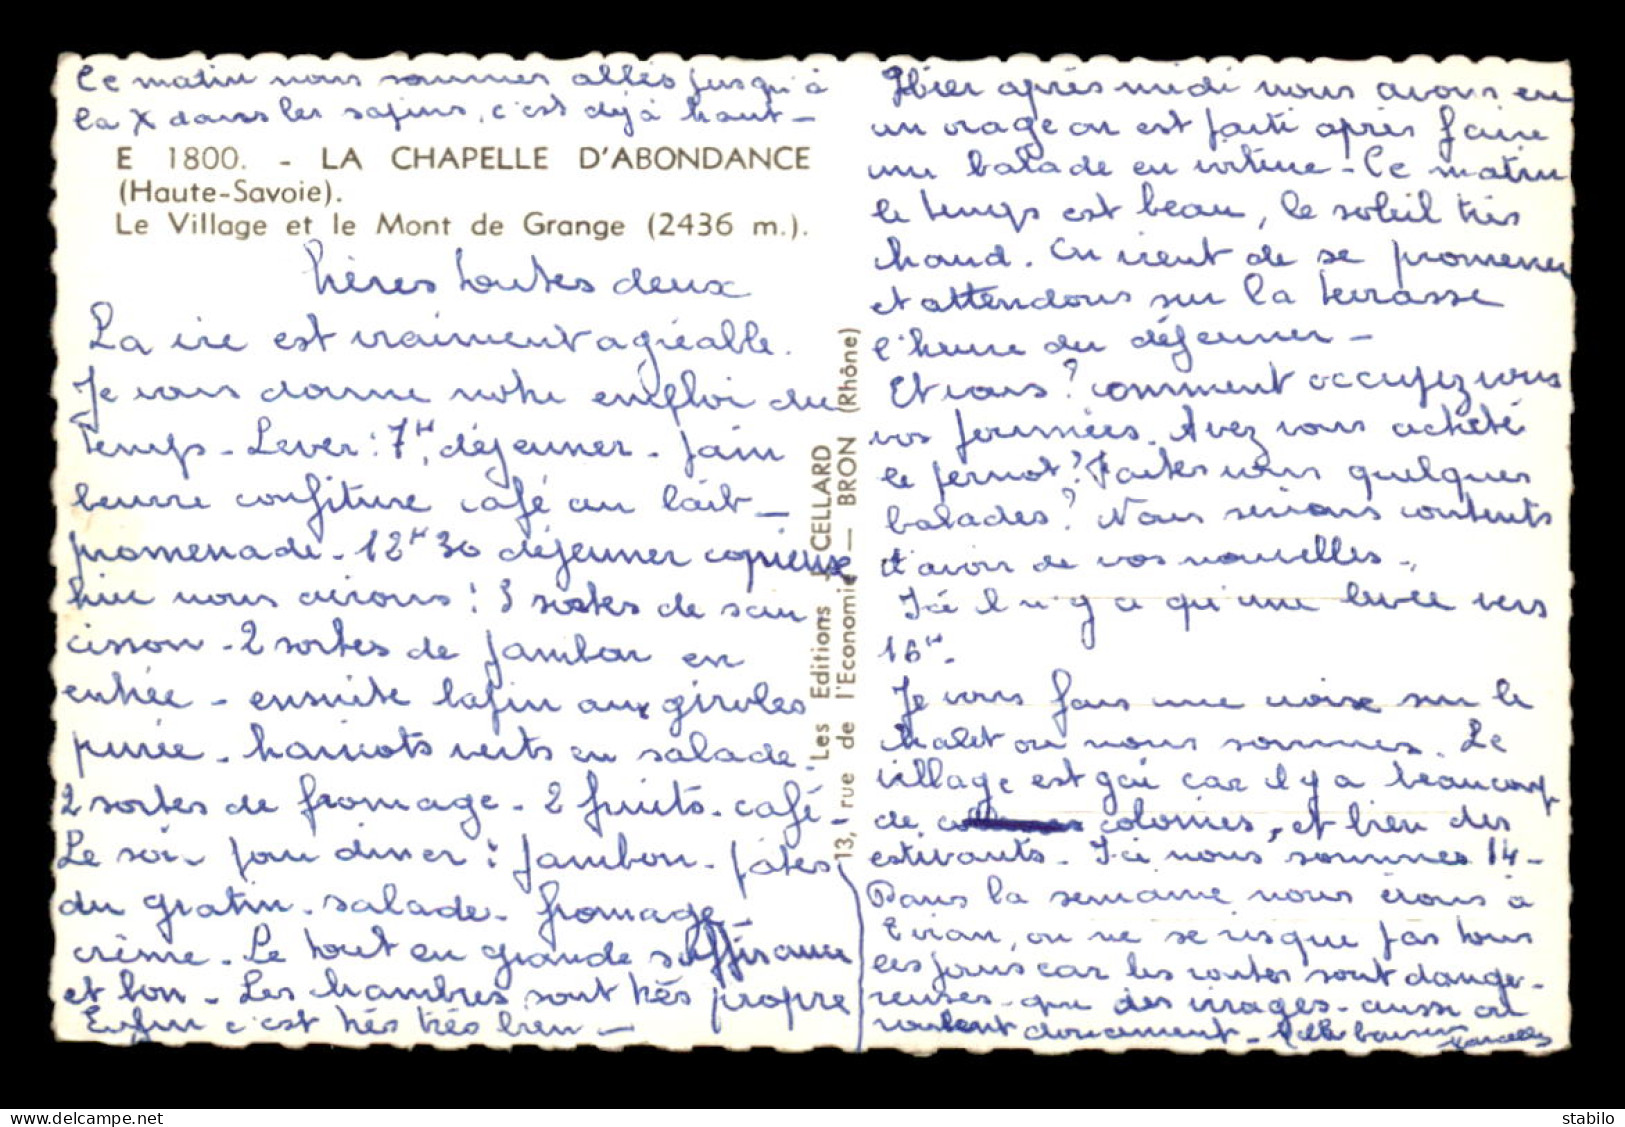 Ce matin nous sommes allés jusqu'à
la X dans les sapins, c'est déjà haut -
E 1800. - LA CHAPELLE D'ABONDANCE
(Haute-Savoie).
Le Village et le Mont de Grange (2436 m.).
Chères toutes deux
La vie est vraiment agréable.
Je vous donne notre emploi du
temps - Lever: 7H, déjeuner - pain
beurre confiture café au lait -
promenade - 12H30 déjeuner copieux
hier nous avions: 3 sortes de sau
cisson - 2 sortes de jambon en
entrée - ensuite lapin aux giroles
purée - haricots verts en salade.
2 sortes de fromage - 2 fruits - café -
Le soir pour diner: jambon - pâtes
du gratin - salade - fromage -
crème - Le tout en grande suffisance
et bon - Les chambres sont très propre
Enfin c'est très très bien -
Les Editions J. CELLARD
13, rue de l'Economie — BRON (Rhône)
Hier après midi nous avons eu
un orage on est parti après faire
une balade en voiture - Ce matin
le temps est beau, le soleil très
chaud. On vient de se promener
et attendons sur la terrasse
l'heure du déjeuner -
Et vous? comment occupez vous
vos journées. Avez vous acheté
le pernot? Faites vous quelques
balades? Nous serions contents
d'avoir de vos nouvelles.
Ici il n'y a qu'une levée vers
16H.
Je vous fais une croix sur le
chalet ou nous sommes. Le
village est gai car il y a beaucoup
de colonies, et bien des
estivants - Ici nous sommes 14 -
Dans la semaine nous irons à
Evian, on ne se risque pas tous
les jours car les routes sont dange-
reuses - que des virages - aussi on
roulent doucement -